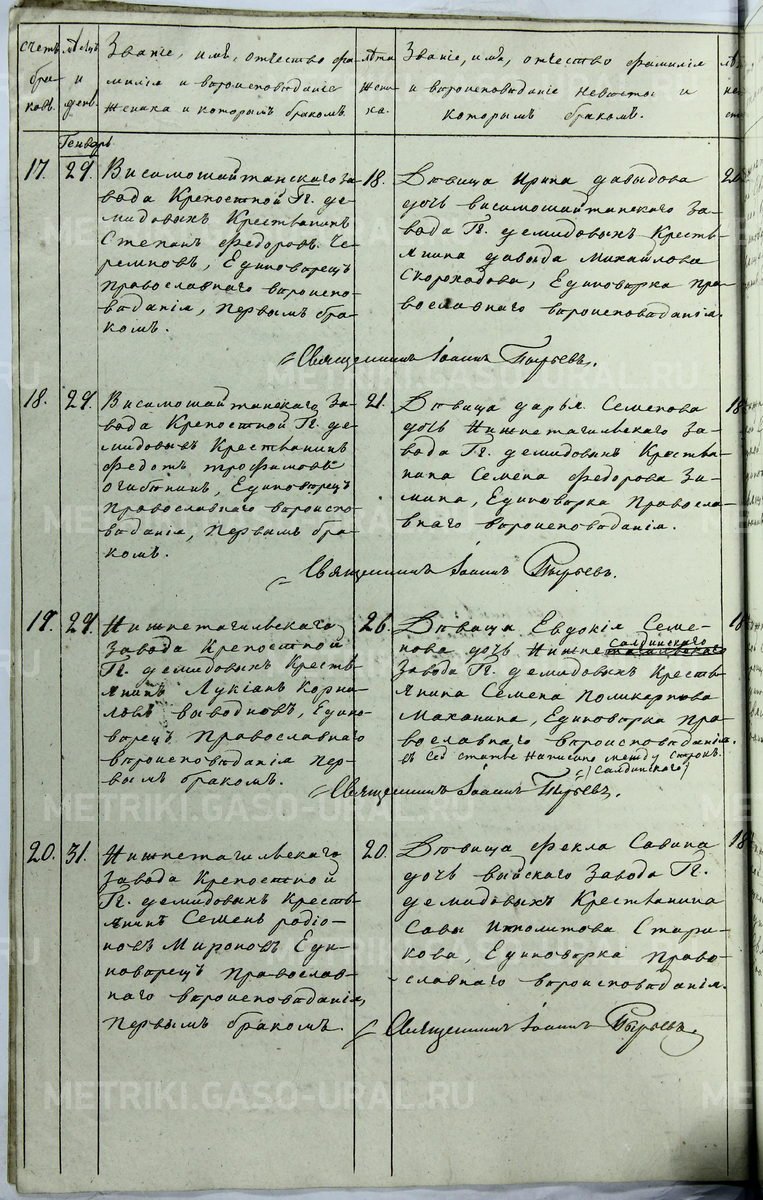 Счетъ бра- ковъ.
мѣсяцъ и день.
Званіе, имя, отчество фа-
милія и вѣроисповѣданіе
жениха и которымъ бракомъ.
лѣта жени- ха.
Званіе, имя, отчество фамилія
и вѣроисповѣданіе невѣсты и
которымъ бракомъ.
Генварь
17.
29.
Висимошайтанскаго за-
вода Крепостной Гг. де-
мидовыхъ Крестьянинъ
Степанъ Федоровъ Че-
ремновъ, Единоверецъ
православнаго вѣроиспо-
вѣданія, первымъ бра-
комъ.
18.
Дѣвица Ирина давыдова
дочь висимошайтанскаго За-
вода Гг. демидовыхъ Кресть-
янина давыда Михайлова
Скороходова, Единовѣрка пра-
вославнаго вѣроисповѣданія.
20
Священникъ Іоаннъ Пырьевъ.
18.
29.
Висимошайтанскаго За-
вода Крепостной Гг. де-
мидовыхъ Крестьянинъ
Федотъ трофимовъ
Огибенинъ, Единоверецъ
Православнаго вѣроиспо-
вѣданія, Первымъ бра-
комъ.
21.
Дѣвица дарья Семенова
дочь Нижнетагильскаго За-
вода Гг. демидовыхъ Крестья-
нина Семена Федорова Зи-
мина, Единовѣрка Правосла-
внаго вѣроисповѣданія.
18
Священникъ Іоаннъ Пырьевъ.
19.
29.
Нижнетагильскаго
Завода Крепостной
Гг. демидовыхъ Кресть-
янинъ Лукіанъ Корни-
ловъ выводновъ, Едино-
верецъ Православнаго
вѣроисповѣданія пер-
вымъ бракомъ.
26.
Дѣвица Евдокія Семе-
нова дочь Нижне салдинскаго
Завода Гг. демидовыхъ Кресть-
янина Семена Поликарпова
Маханина, Единовѣрка пра-
вославнаго вѣроисповѣданія.
въ сей статье написано между строкъ
(Салдинскаго)
18
Священникъ Іоаннъ Пырьевъ.
20.
31.
Нижнетагильскаго
Завода Крепостной
Гг. демидовыхъ Кресть-
янинъ Семенъ родіо-
новъ Мироновъ Еди-
новерецъ православ-
наго вѣроисповѣданія,
первымъ бракомъ.
20.
Дѣвица Фекла Савина
дочь выйскаго Завода Гг.
демидовыхъ Крестьянина
Савы Ипполитова Стари-
кова, Единовѣрка Право-
славнаго вѣроисповѣданія.
18
Священникъ Іоаннъ Пырьевъ.
METRIKI.GASO-URAL.RU